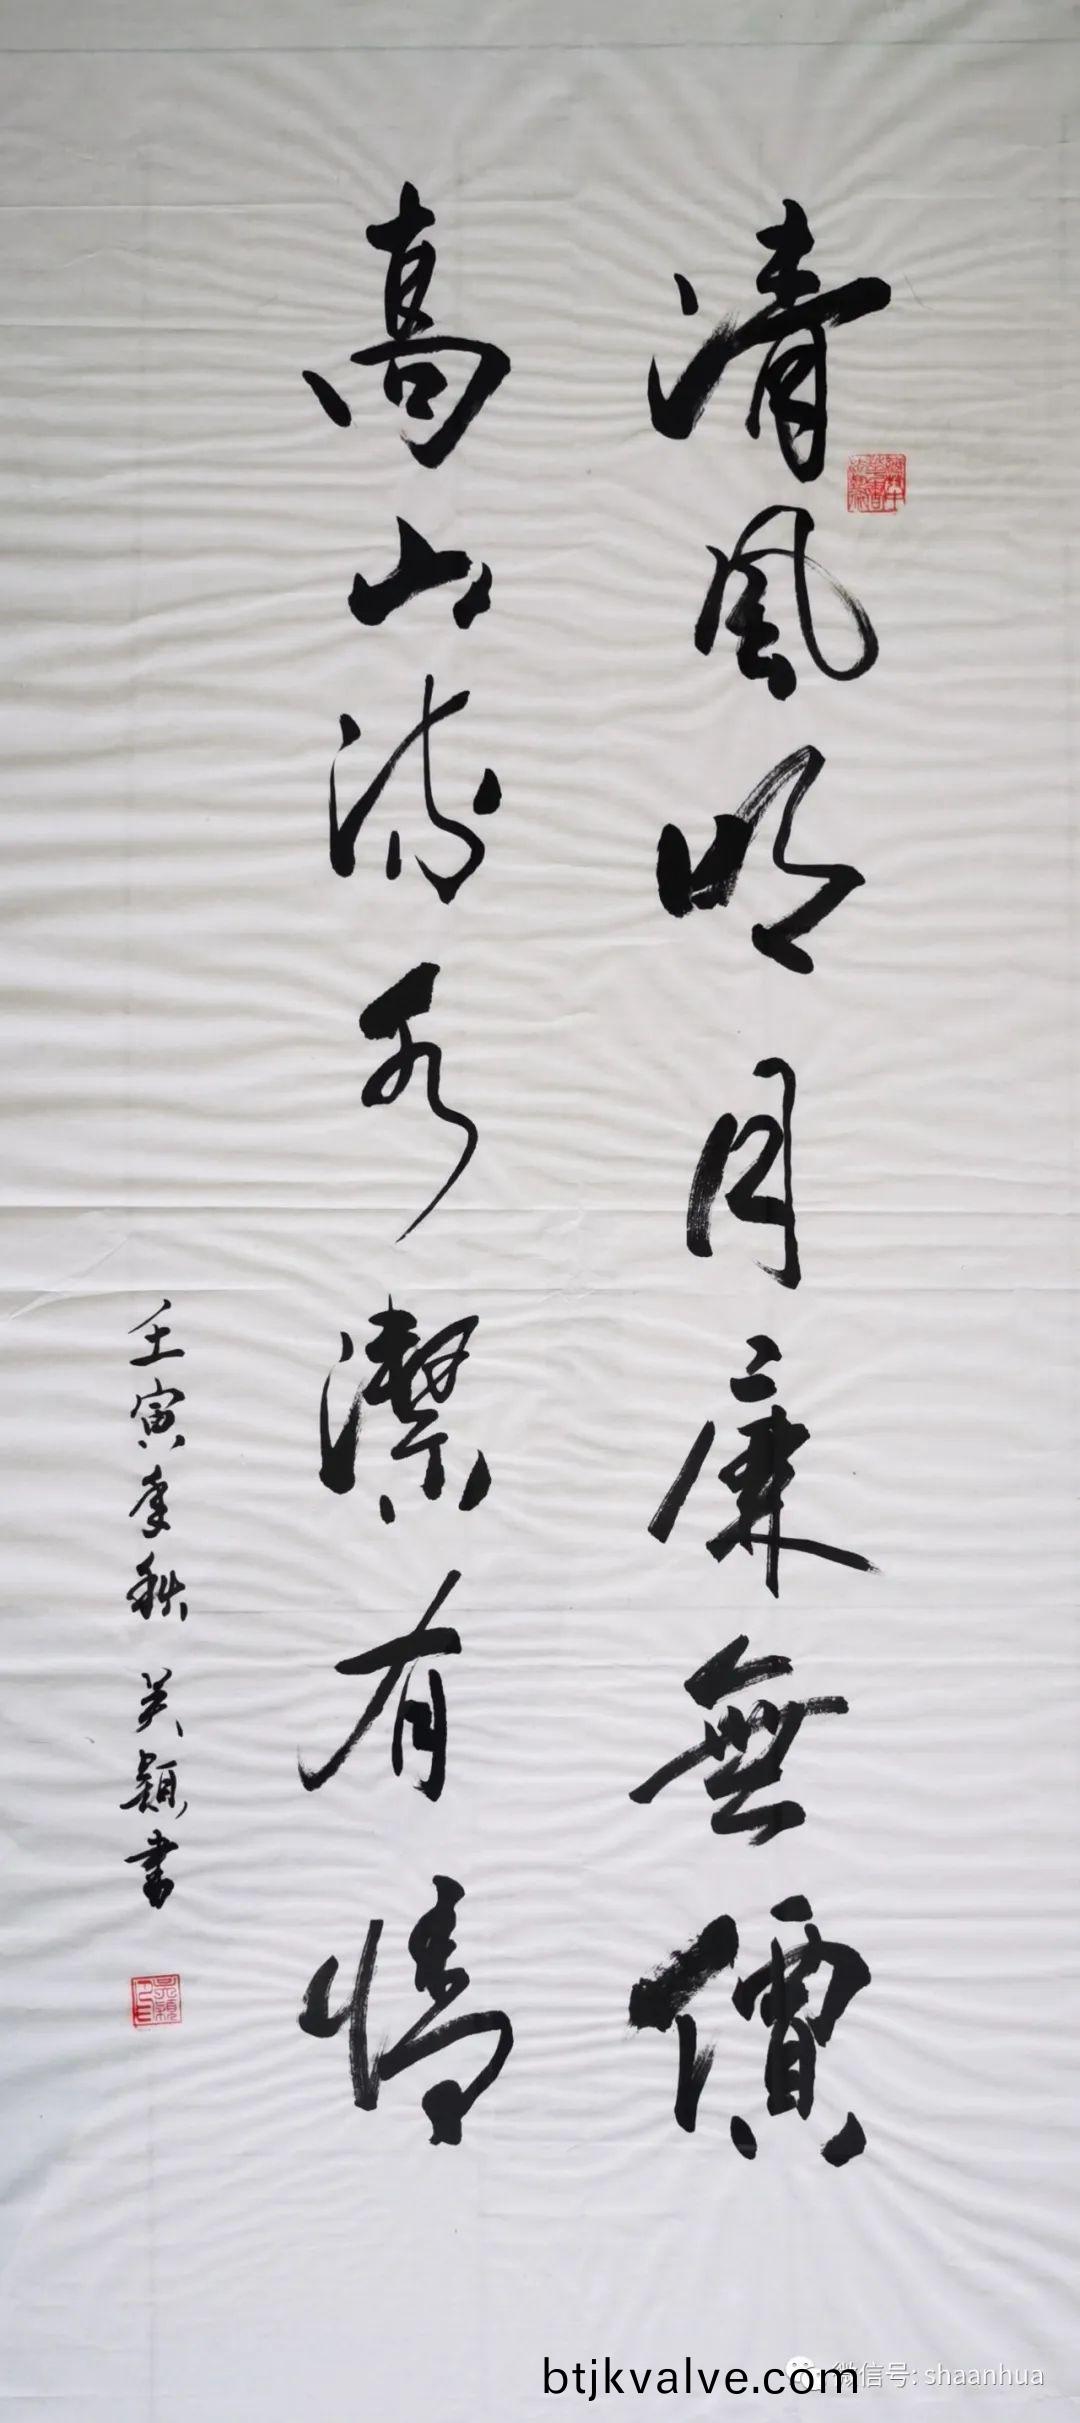 清風明月廉無價
高山流水潔有情
壬寅季秋 吴穎書
btjkvalve.com
微信号: shaanhua